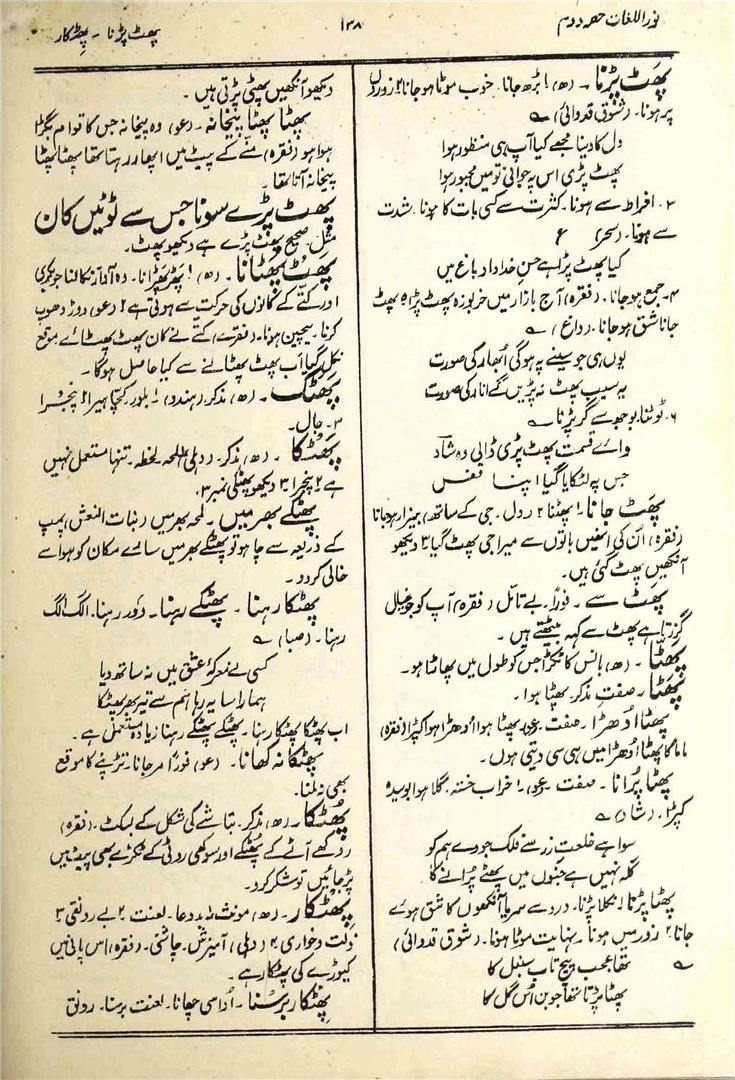 نور اللغات حصہ دوم
۱۳۸
پھٹ پڑنا ۔ پھِٹکار
پھَٹ پڑنا ۔ (ھ) ۱ بڑھ جانا۔ خوب موٹا ہو جانا ۲ زوروں
پر ہونا۔ (شوق قدوائی) ؎
دل کا دینا مجھے کیا آپ ہی منظور ہوا
پھٹ پڑی اس پہ جوانی تو میں مجبور ہوا
۳۔ افراط سے ہونا۔ کثرت سے کسی بات کا ہونا۔ شدت
سے ہونا۔ (سحر) ع
کیا پھٹ پڑا ہے حسن خداداد باغ میں
۴۔ جمع ہو جانا۔ (فقرہ) آج بازار میں خربوزہ پھٹ پڑا ۵ پھٹ
جانا شق ہو جانا۔ (داغ) ؎
یوں ہی جو سینے پہ ہو گی اُبھار کی صورت
یہ سیب پھٹ نہ پڑیں گے انار کی صورت
۶۔ ٹوٹنا بوجھ سے گر پڑنا ؎
واے قسمت پھٹ پڑی ڈالی وہ شاد
جس پہ لٹکایا گیا اپنا قفس
پھَٹ جانا۔ ۱ پھٹنا ۲ (دل۔ جی کے ساتھ) بیزار ہو جانا
(فقرہ) اُن کی انھیں باتوں سے میرا جی پھٹ گیا ۳ دیکھو
آنکھیں پھٹ گئی ہیں۔
پھَٹ سے ۔ فوراً۔ بے تامل (فقرہ) آپ کو جو خیال
گزرتا ہے پھٹ سے کہہ بیٹھتے ہیں ۔
پھٹّا ۔ (ھ) بانس کا ٹکڑا جس کو طول میں پھاڑا ہو۔
پھَٹا ۔ صفت مذکر پھٹا ہوا۔
پھٹا اُدھڑا ۔ صفت۔ (عو) پھٹا ہوا اُدھڑا ہوا کپڑا (فقرہ)
ماما کا پھٹا اُدھڑا میں ہی سی دیتی ہوں۔
پھٹا پُرانا ۔ صفت (عو) خراب خستہ۔ گلا ہوا بوسیدہ
کپڑا۔ (رشاد) ؎
سوا ہے خلعت زر سے فلک جو دے ہم کو
گلہ نہیں ہے جنوں میں پھٹے پرانے کا
پھٹا پڑنا ۱ نکلا پڑنا۔ درد سے سر یا آنکھوں کا شق ہوئے
جانا ۲ زور میں ہونا۔ نہایت موٹا ہونا۔ (شوق قدوائی)
؎ تھا عجب پیچ تاب سنبل کا
پھٹا پڑتا تھا جوبن اُس گل کا
دیکھو آنکھیں پھٹی پڑتی ہیں ۔
پھٹا پھٹا پیخانہ ۔ (عو) وہ پیخانہ جس کا قوام بگڑا
ہوا ہو (فقرہ) منّے کے پیٹ میں اپھار رہتا تھا پھٹا پھٹا
پیخانہ آتا تھا۔
پھٹ پڑے سونا جس سے ٹوٹیں کان
مثل۔ صحیح پھٹ پڑے ہے دیکھو پھٹ۔
پھٹ پھٹانا ۔ (ھ) ۱ پھڑپھڑانا۔ وہ آواز نکالنا جو بکری
اور کتّے کے کانوں کی حرکت سے ہوتی ہے ۲ (عو) دوڑ دھوپ
کرنا۔ بیچین ہونا۔ (فقرے) کتّے نے کان پھٹ پھٹائے موقع
نکل گیا اب پھٹ پھٹانے سے کیا حاصل ہو گا۔
پھٹک ۔ (ھ) مذکر (ہندو) ۱ بلور کچا ہیرا ۲ پنجرا
۳۔ جال۔
پھٹکا ۔ (ھ) مذکر۔ (دہلی) لمحہ لحظہ۔ تنہا مستعمل نہیں
ہے ۲ پنجرا ۳ دیکھو پھٹکی نمبر ۳۔
پھٹکے بھر میں ۔ لمحہ بھر میں (بنات النعش) پمپ
کے ذریعہ سے چاہو تو پھٹکے بھر میں سارے مکان کو ہوا سے
خالی کر دو ۔
پھٹکا رہنا ۔ پھٹکے رہنا ۔ دور رہنا۔ الگ الگ
رہنا۔ (صبا) ؎
کسی نے معرکۂ عشق میں نہ ساتھ دیا
ہمارا سایہ رہا ہم سے تیر بھر پھٹکا
اب پھٹکا پھٹکا رہنا۔ پھٹکے پھٹکے رہنا زیادہ مستعمل ہے ۔
پھٹکا نہ کھانا ۔ (عو) فوراً مر جانا۔ تڑپنے کا موقع
بھی نہ ملنا۔
پھُٹکا ۔ (ھ) مذکر۔ بتاشے کی شکل کے بسکٹ۔ (فقرہ)
روکھے آٹے کے پھٹکے اور سوکھی روٹی کے ٹکڑے بھی پیٹ میں
پڑ جائیں تو شکر کرو۔
پھِٹکار ۔ (ھ) مونث ۱ بد دعا۔ لعنت ۲ بے رونقی ۳
ذلت و خواری ۴ (دہلی) آمیزش۔ چاشنی۔ (فقرہ) اس پانی میں
کیوڑے کی پھٹکار ہے۔
پھِٹکار برسنا ۔ اُداسی چھانا۔ لعنت برسنا۔ رونق